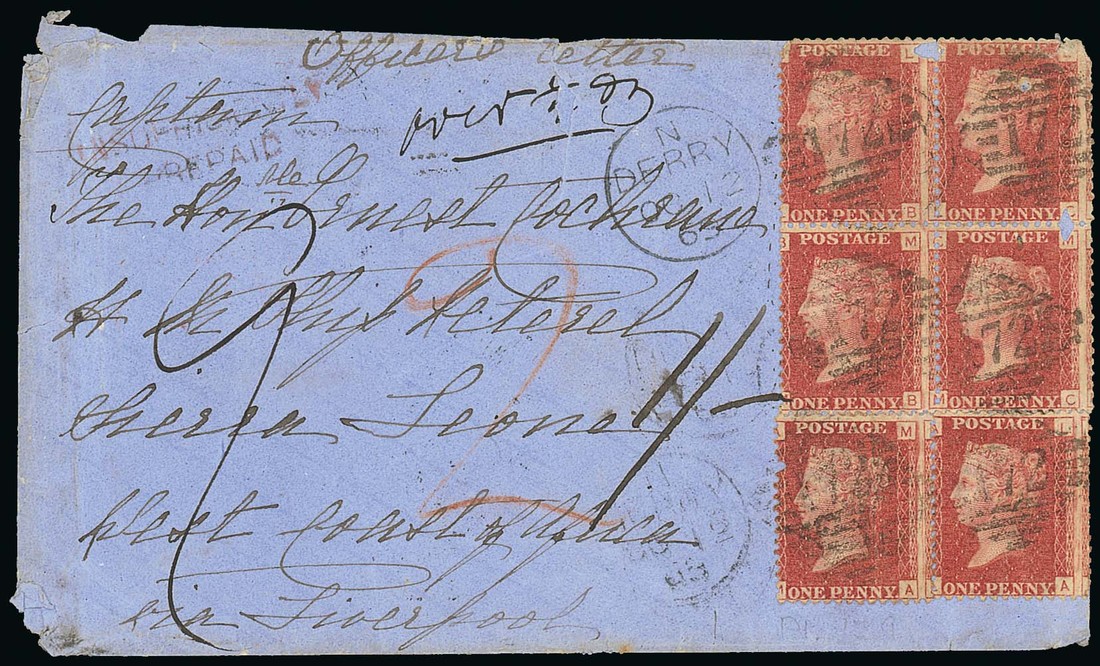 Officers letter
Captain
INSUFFICIENTLY
PREPAID
The Honble Ernest Cochrane
H M Ship Seterel
Sierra Leone
West Coast of Africa
via Liverpool
2
1/-
N
DERRY
12
POSTAGE L
ONE PENNY B
POSTAGE
ONE PENNY C
POSTAGE M
ONE PENNY B
POSTAGE M
M ONE PENNY C
POSTAGE M
ONE PENNY A
POSTAGE L
ONE PENNY A
172